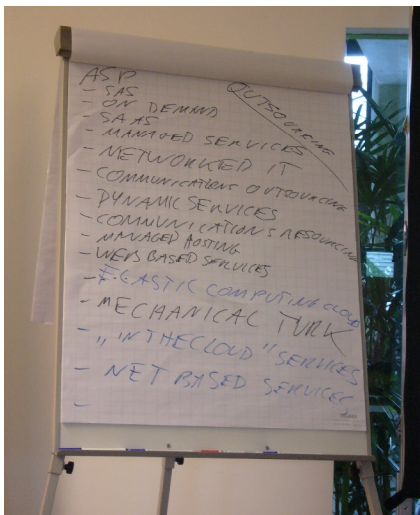 ASP
OUTSOURCING
- SAS
- ON DEMAND
- SAAS
- MANAGED SERVICES
- NETWORKTED IT
- COMMUNICATIONS OUTSOURCING
- DYNAMIC SERVICES
- COMMUNICATIONS RESOURCING
- MANAGED HOSTING
- WEB BASED SERVICES
- ELASTIC COMPUTING CLOUD
- MECHANICAL TURK
- "IN THE CLOUD" SERVICES
- NET BASED SERVICES
-